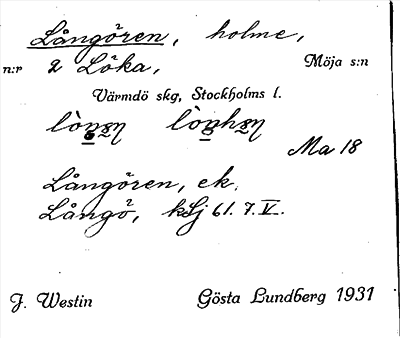 Långören, holme,
n:r 2 Löka, Möja s:n
Värmdö skg, Stockholms l.
Ma 18
Långören, ek.
Långö, kSj 61. 7. V.
J. Westin Gösta Lundberg 1931